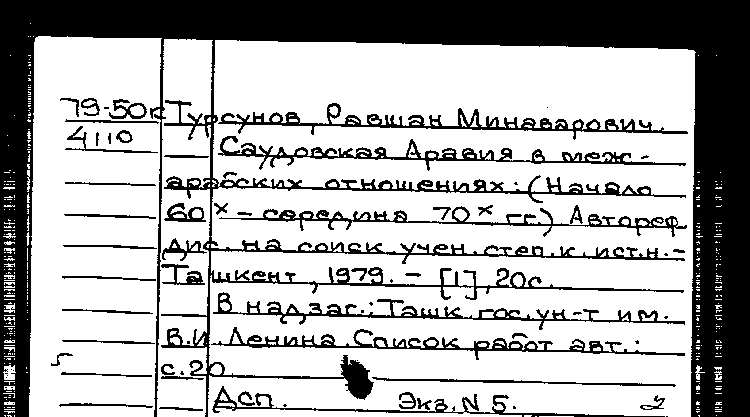 79-50к Турсунов, Равшан Минаварович.
4110
Саудовская Аравия в меж-
арабских отношениях: (Начало
60х - середина 70х гг.) Автореф.
дис. на соиск учен. степ. к. ист. н. -
Ташкент, 1979. - [1], 20с.
В надзаг.: Ташк. гос. ун-т им.
В.И. Ленина. Список работ авт.:
с. 20
Дсп. Экз. N 5.